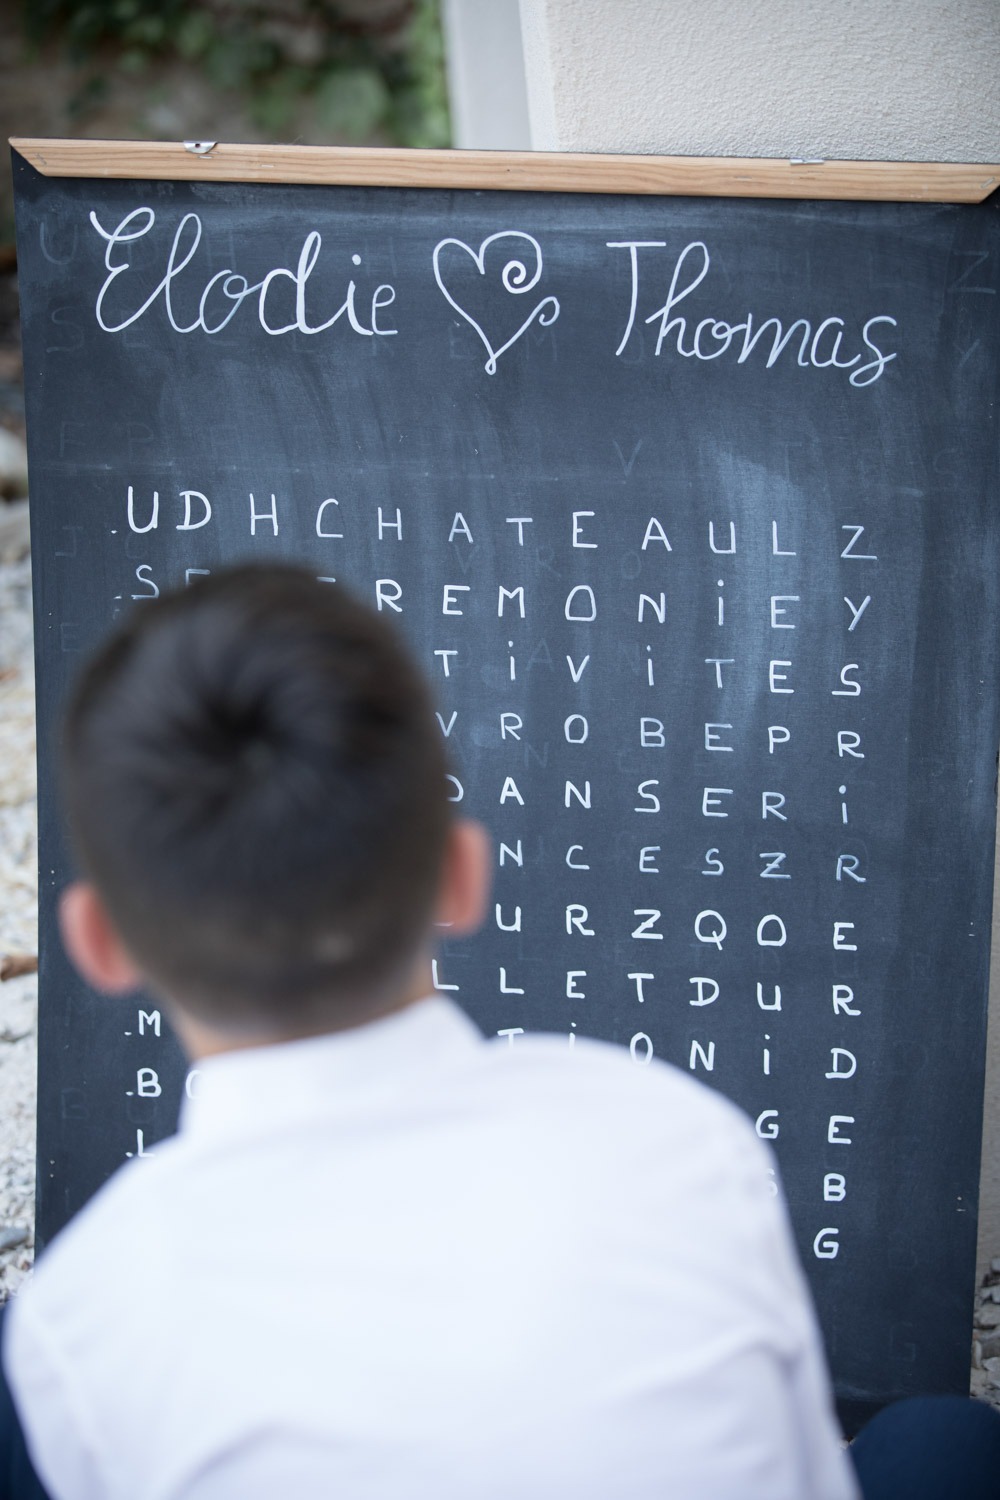 Elodie Thomas
U D H C H A T E A U L Z
S R E M O N i E Y
T i V i T E S
V R O B E P R
D A N S E R i
N C E S Z R
U R Z Q O E
L L E T D U R
.M T i O N i D
.B O E
.L G E
S B
G